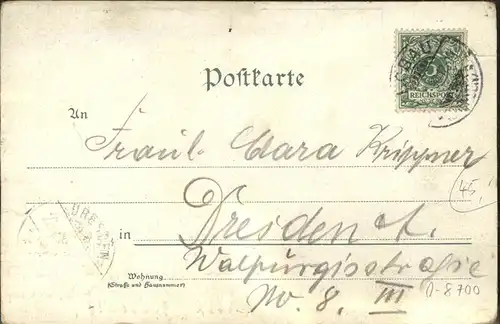 Postkarte
5
REICHSPOST
An
Fräul. Clara Krippner
45,
in Dresden A.
DRESDEN
Walpurgisstraße
Wohnung
(Straße und Hausnummer)
No. 8. III
D-8700